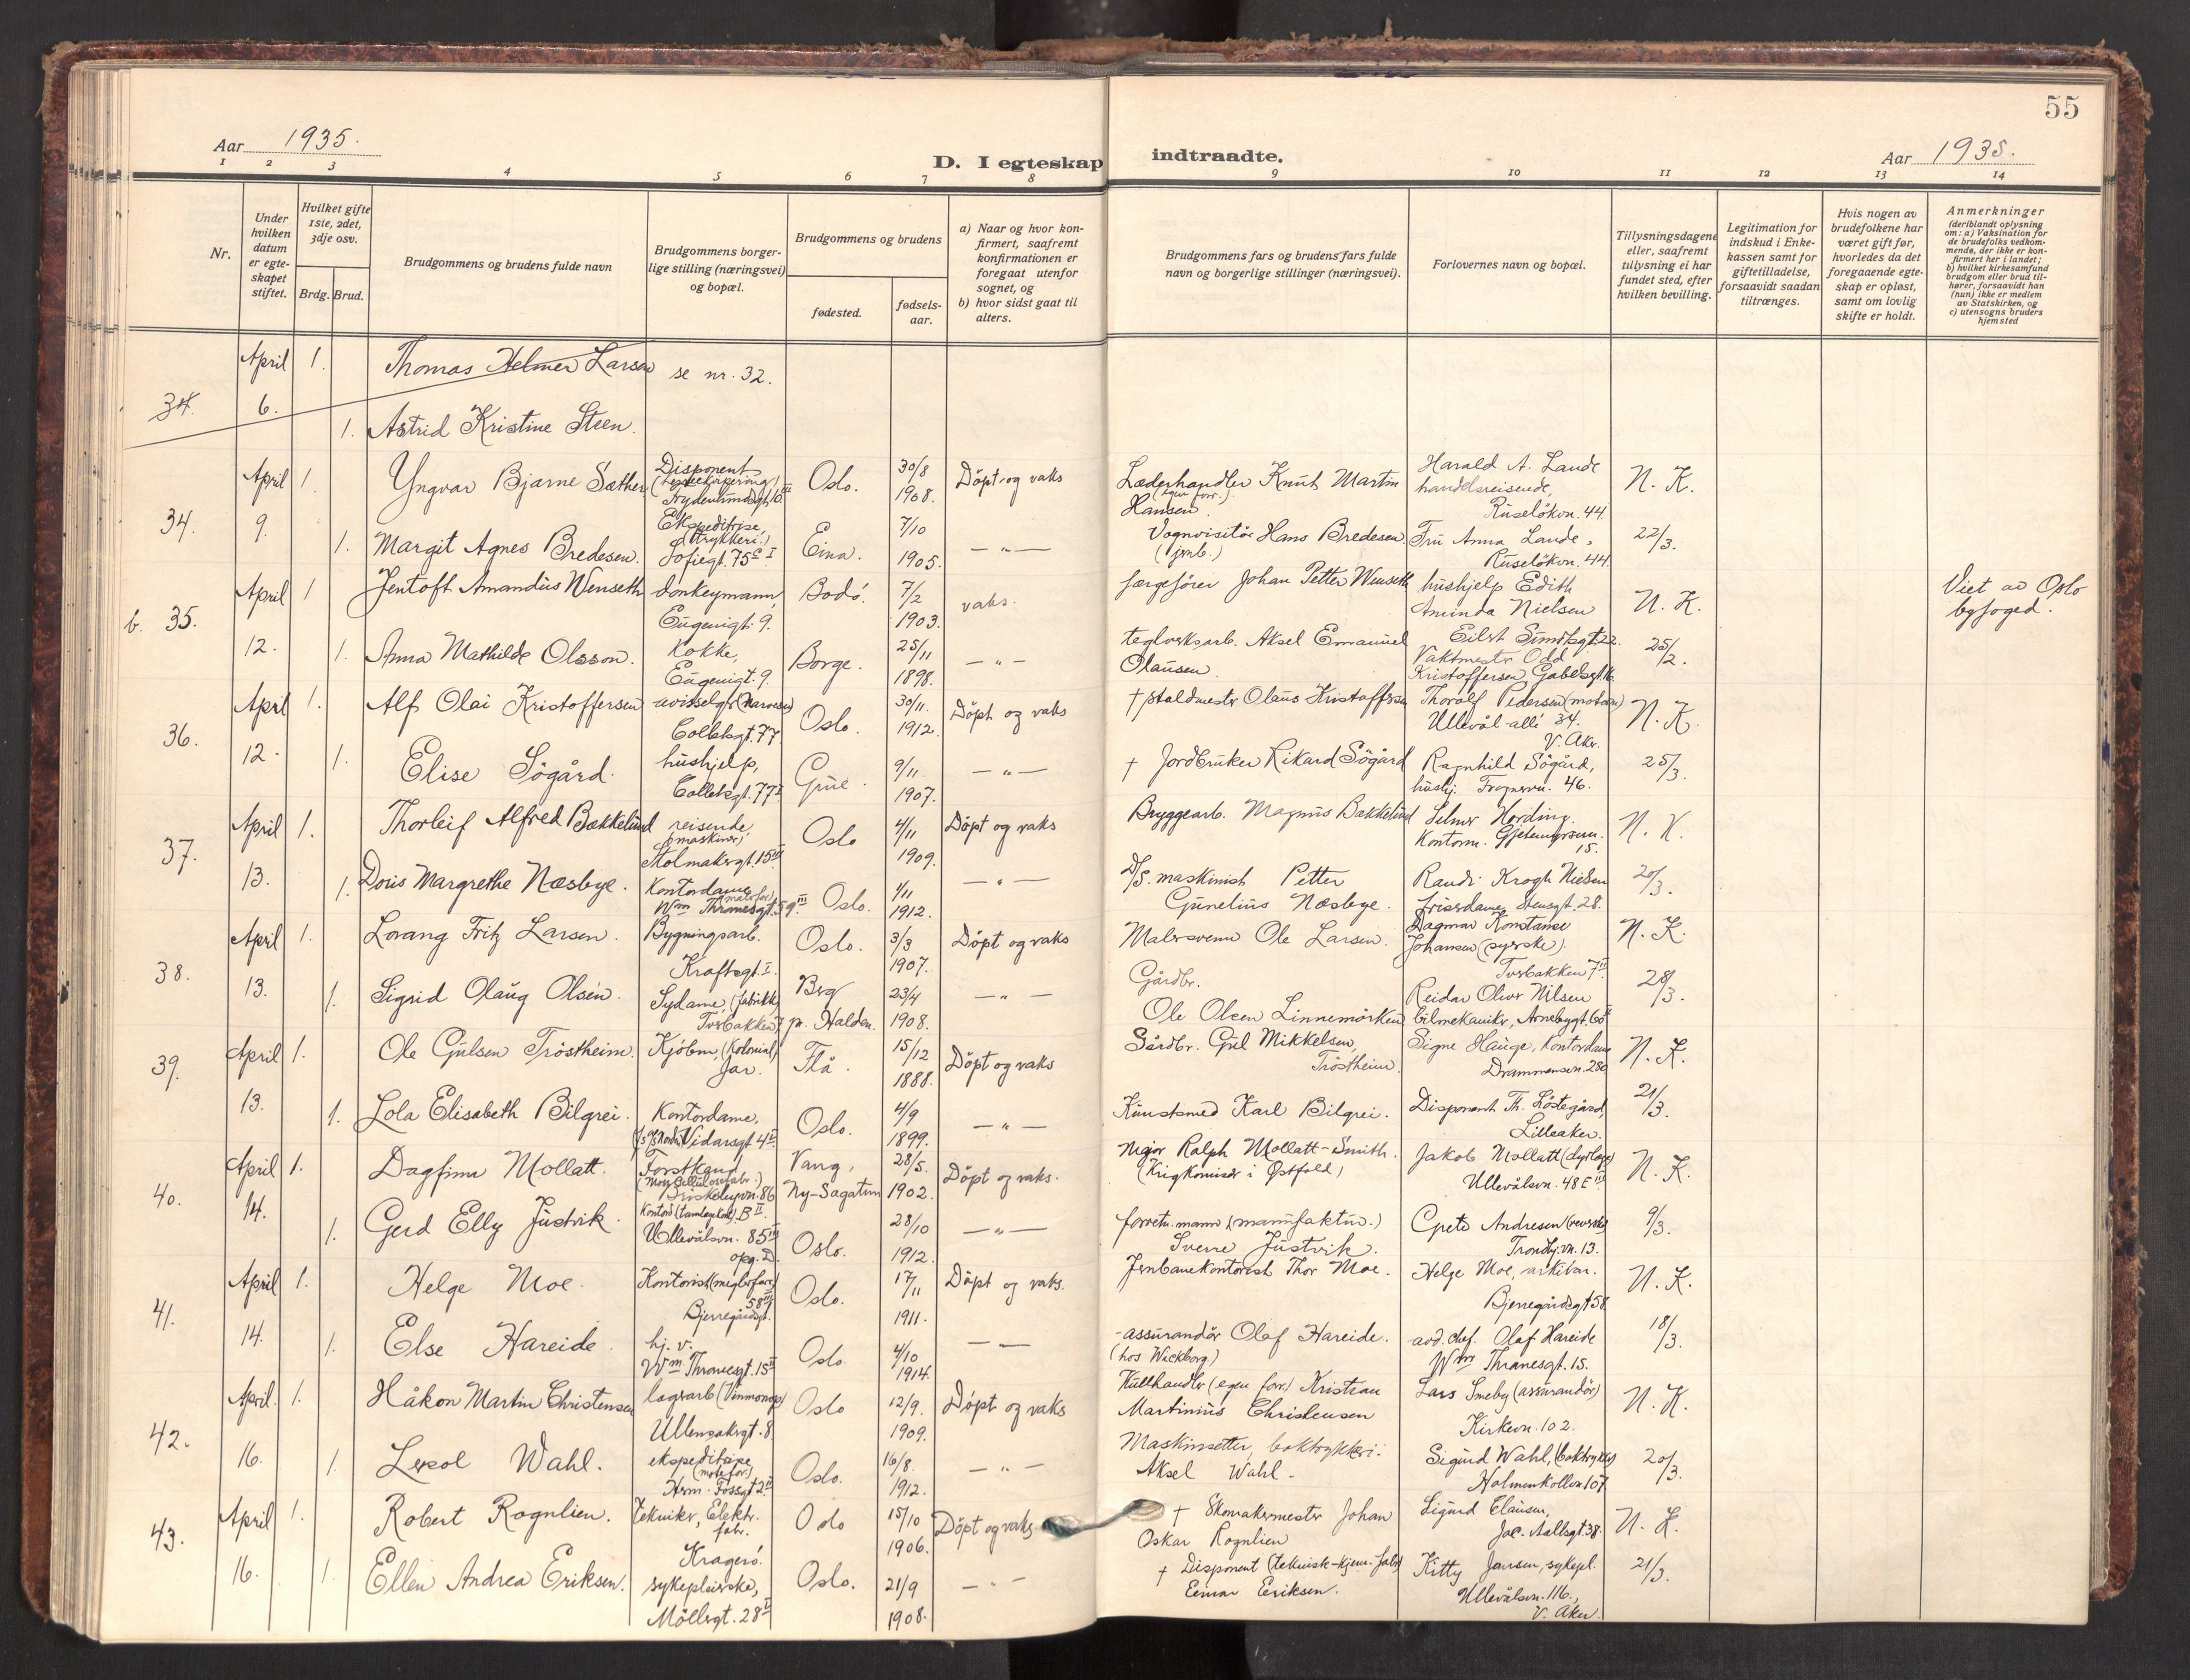 55
Aar 1935.
D. I egteskap indtraadte.
Aar 1935.
1 2 3 4 5 6 7 8 9 10 11 12 13 14
Nr.
Under hvilken datum er egteskapet stiftet.
Hvilket gifte 1ste, 2det, 3dje osv.
Brdg. Brud.
Brudgommens og brudens fulde navn
Brudgommens borgerlige stilling (næringsvei) og bopæl.
Brudgommens og brudens
fødested.
fødselsaar.
a) Naar og hvor konfirmert, saafremt konfirmationen er foregaat utenfor sognet, og
b) hvor sidst gaat til alters.
Brudgommens fars og brudens fars fulde navn og borgerlige stillinger (næringsvei).
Forlovernes navn og bopæl.
Tillysningsdagene eller, saafremt tillysning ei har fundet sted, efter hvilken bevilling.
Legitimation for indskud i Enkekassen samt for giftetilladelse, forsaavidt saadan tiltrænges.
Hvis nogen av brudefolkene har været gift før, hvorledes da det foregaaende egteskap er opløst, samt om lovlig skifte er holdt.
Anmerkninger
(deriblandt oplysning om: a) Vaksination for de brudefolks vedkommende, der ikke er konfirmert her i landet;
b) hvilket kirkesamfund brudgom eller brud tilhører, forsaavidt han (hun) ikke er medlem av Statskirken, og
c) utensogns bruders hjemsted
34. April 6. 1. Thomas Helmer Larsen se nr. 32.
1. Astrid Kristine Steen.
34. April 9. 1. Yngvar Bjarne Sæther Disponent Oslo. 30/8 1908. Döpt og vaks Læderhandler Knut Martin Hansen (egen forr.). Harald A. Lande handelsreisende, Ruselökvn. 44. N. K.
1. Margit Agnes Bredesen. Ekspeditrise, (trykkeri.) Sofiegt. 75 C I Eina. 7/10 1905. — " — Vognvisitör Hans Bredesen (jrnb.) Fru Anna Lande, Ruselökvn. 44. 22/3.
b. 35. April 12. 1 Jentoft Amandus Wenseth donkeymann, Eugenigt. 9. Bodö. 7/2 1903. vaks. færgefører Johan Petter Wenseth hushjelp Edith Aminda Nielsen Eilert Sundtsgt. 22. N. K. Viet av Oslo byfoged.
1. Anna Mathilde Olsson. Kokke, Eugenigt. 9. Borge. 25/11 1898. — " — teglverksarb. Aksel Emanuel Olausen. Vaktmestr Odd Kristoffersen, Gabelsgt. 25/2.
36. April 12. 1. Alf Olai Kristoffersen avisselger (Narvesen) Colletsgt. 77. Oslo. 30/11. 1912. Döpt og vaks † staldmester Olaus Kristoffersen Thoralf Pedersen Ullevål allé 34. V. Aker. N. K.
1. Elise Sögård. hushjelp, Colletsgt. 77 I Grue. 9/11. 1907. — " — † Jordbruker Rikard Sögård Ragnhild Sögård, hushj. Frognervn. 46. 25/3.
37. April 13. 1. Thorleif Alfred Bækkelund reisende, (maskiner) Stolmakergt. 15 III Oslo 4/11 1909. Döpt og vaks Bryggearb. Magnus Bækkelund Selmer Hording. Kontorm. 15. N. K.
1. Doris Margrethe Næsbye. Kontordame Wm Thranesgt. 59 III Oslo. 1/11 1912. — " — D/S. maskinist Petter Gunelius Næsbye. Randi Krogh Nielsen frisrdame, Stensgt. 28. 20/3.
38. April 13. 1. Lorang Fritz Larsen. Bygningsarb. Kraftsgt. I. Oslo. 3/3 1907. Döpt og vaks Malersvenn Ole Larsen. Dagmar Konstanse Johansen (syerske). Torsbakken 7 II N. K.
1. Sigrid Olaug Olsen. Sydame, (fabrikk) Torsbakken 7 Berg pr. Halden. 23/4 1908. — " — Gårdbr. Ole Olsen Linnemörken Reidar Oliver Nilsen bilmekanikr, Arnebygt. 28/3.
39. April 13. 1. Ole Gulsen Tröstheim. Kjöbm. (Kolonial) Jar. Flå. 15/12 1888. Döpt og vaks Gårdbr. Gul Mikkelsen, Tröstheim. Signe Hauge, Kontordame Drammensvn. N. K.
1. Lola Elisabeth Bilgrei. Kontordame, Vidarsgt. 4 II Oslo. 4/9 1899. — " — Kunstsmed Karl Bilgrei. Disponent Th. Löstegård, Lilleaker. 21/3.
40. April 14. 1. Dagfinn Mollatt. Forstkand. Vang, Ny-Sagatun 28/5. 1902. Döpt og vaks. Major Ralph Mollatt-Smith. (Krigkomisær i Østfold) Jakob Mollatt Ullevålsvn. 48 E III N. K.
1. Gerd Elly Justvik. Ullevålsvn. 85 III opg. D. Oslo. 28/10 1912. — " — forretn. mann (manufaktur.) Sverre Justvik. Grete Andresen Trondhj. vn. 13. 9/3.
41. April 14. 1. Helge Moe. Kontorist Bjerregårdsgt. 58 III Oslo. 17/11 1911. Döpt og vaks. Jernbanekontorist Thor Moe. Helge Moe, arkivar. Bjerregårdsgt 58. N. K.
1. Else Hareide. hj. v. Wm Thranesgt. 15 II Oslo 4/10 1914. — " — assurandör Olaf Hareide. (hos Wickborg) avd. chef. Olaf Hareide Wm Thranesgt. 15. 18/3.
42. April. 16. 1. Håkon Martin Christensen lagerarb (Vinmonop) Ullensakergt. 8. Oslo 12/9. 1909. Döpt og vaks Kullhandler (egen forr.) Kristian Martinius Christensen Lars Smeby (assurandör) Kirkevn. 102. N. K.
1. Wahl. ekspeditrise Herm. Fossgt 2 II Oslo. 16/8. 1912. — " — Maskinsetter, boktrykkeri. Aksel Wahl. Sigurd Wahl, Holmenkollvn 107. 20/3.
43. April 16. 1. Robert Rognlien. Tekniker, Elektr. fabr. Kragerö. Oslo 15/10 1906. Döpt og vaks. † Skomakermester Johan Oskar Rognlien Sigurd Clausen, Jac. Aallsgt. 38. N. K.
1. Ellen Andrea Eriksen. sykepleierske, Möllergt. 28 I Oslo. 21/9 1908. — " — † Disponent (teknisk-kjem. fabr) Einar Eriksen. Kitty Jansen, sykepl. Ullevålsvn. 116., V. Aker. 21/3.